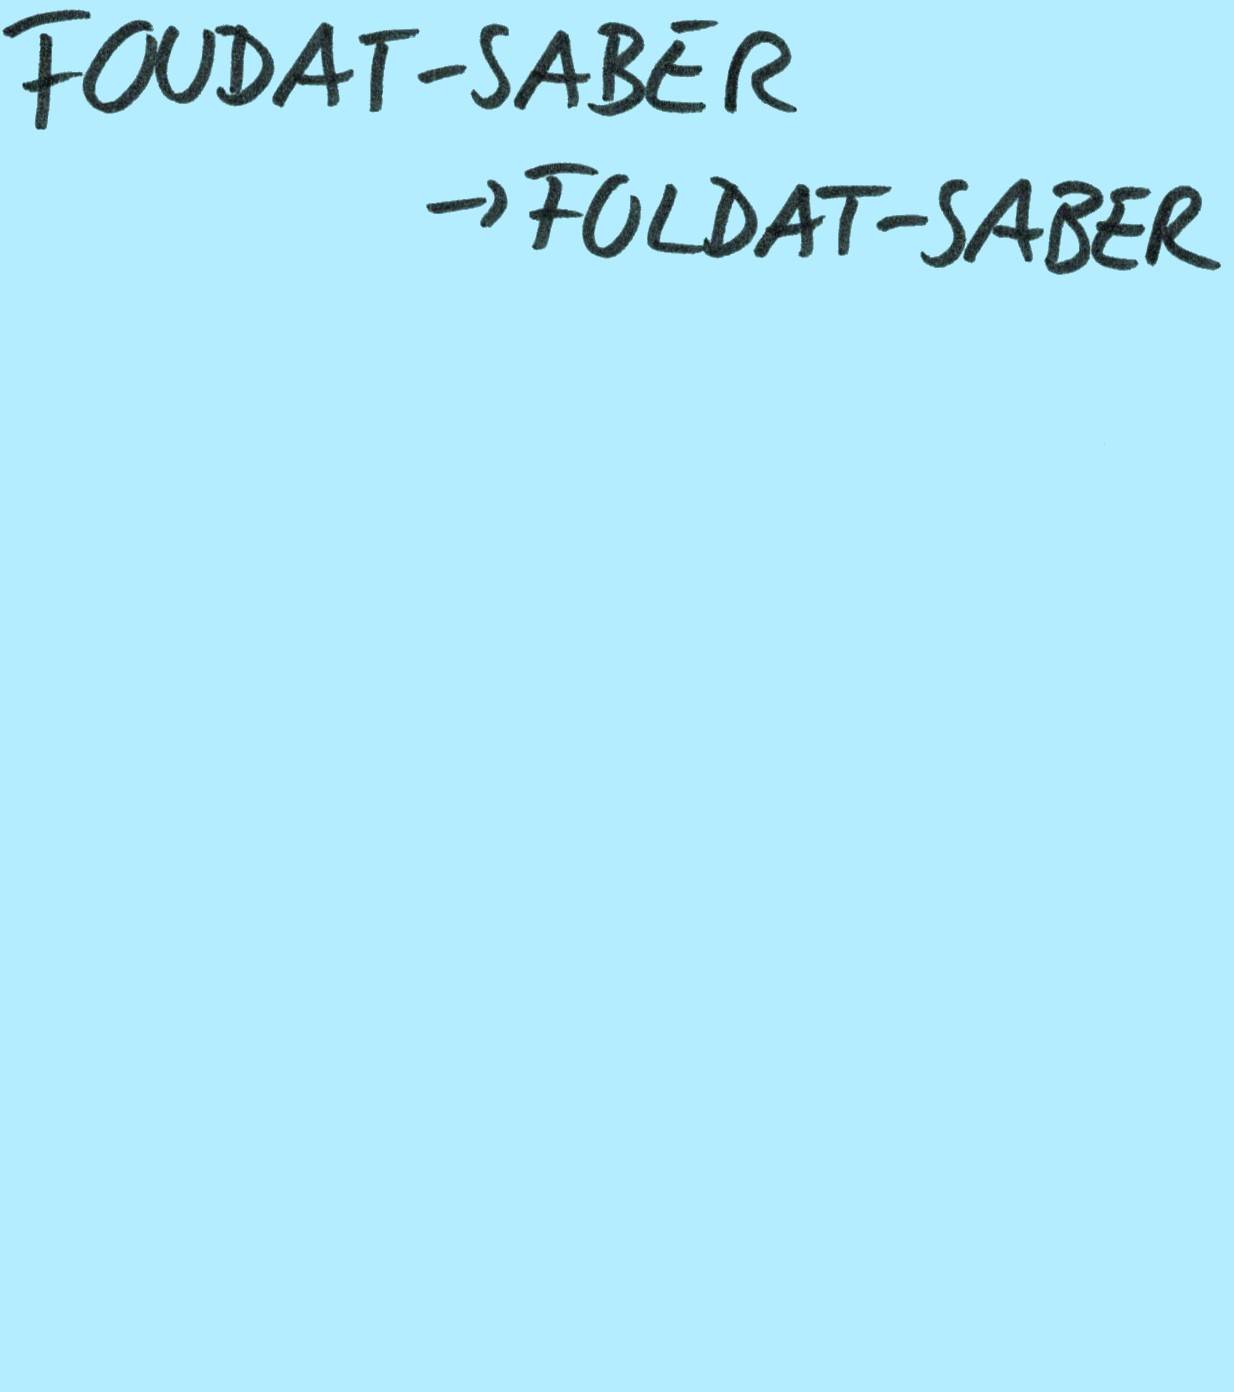 FOUDAT-SABER
→ FOLDAT-SABER